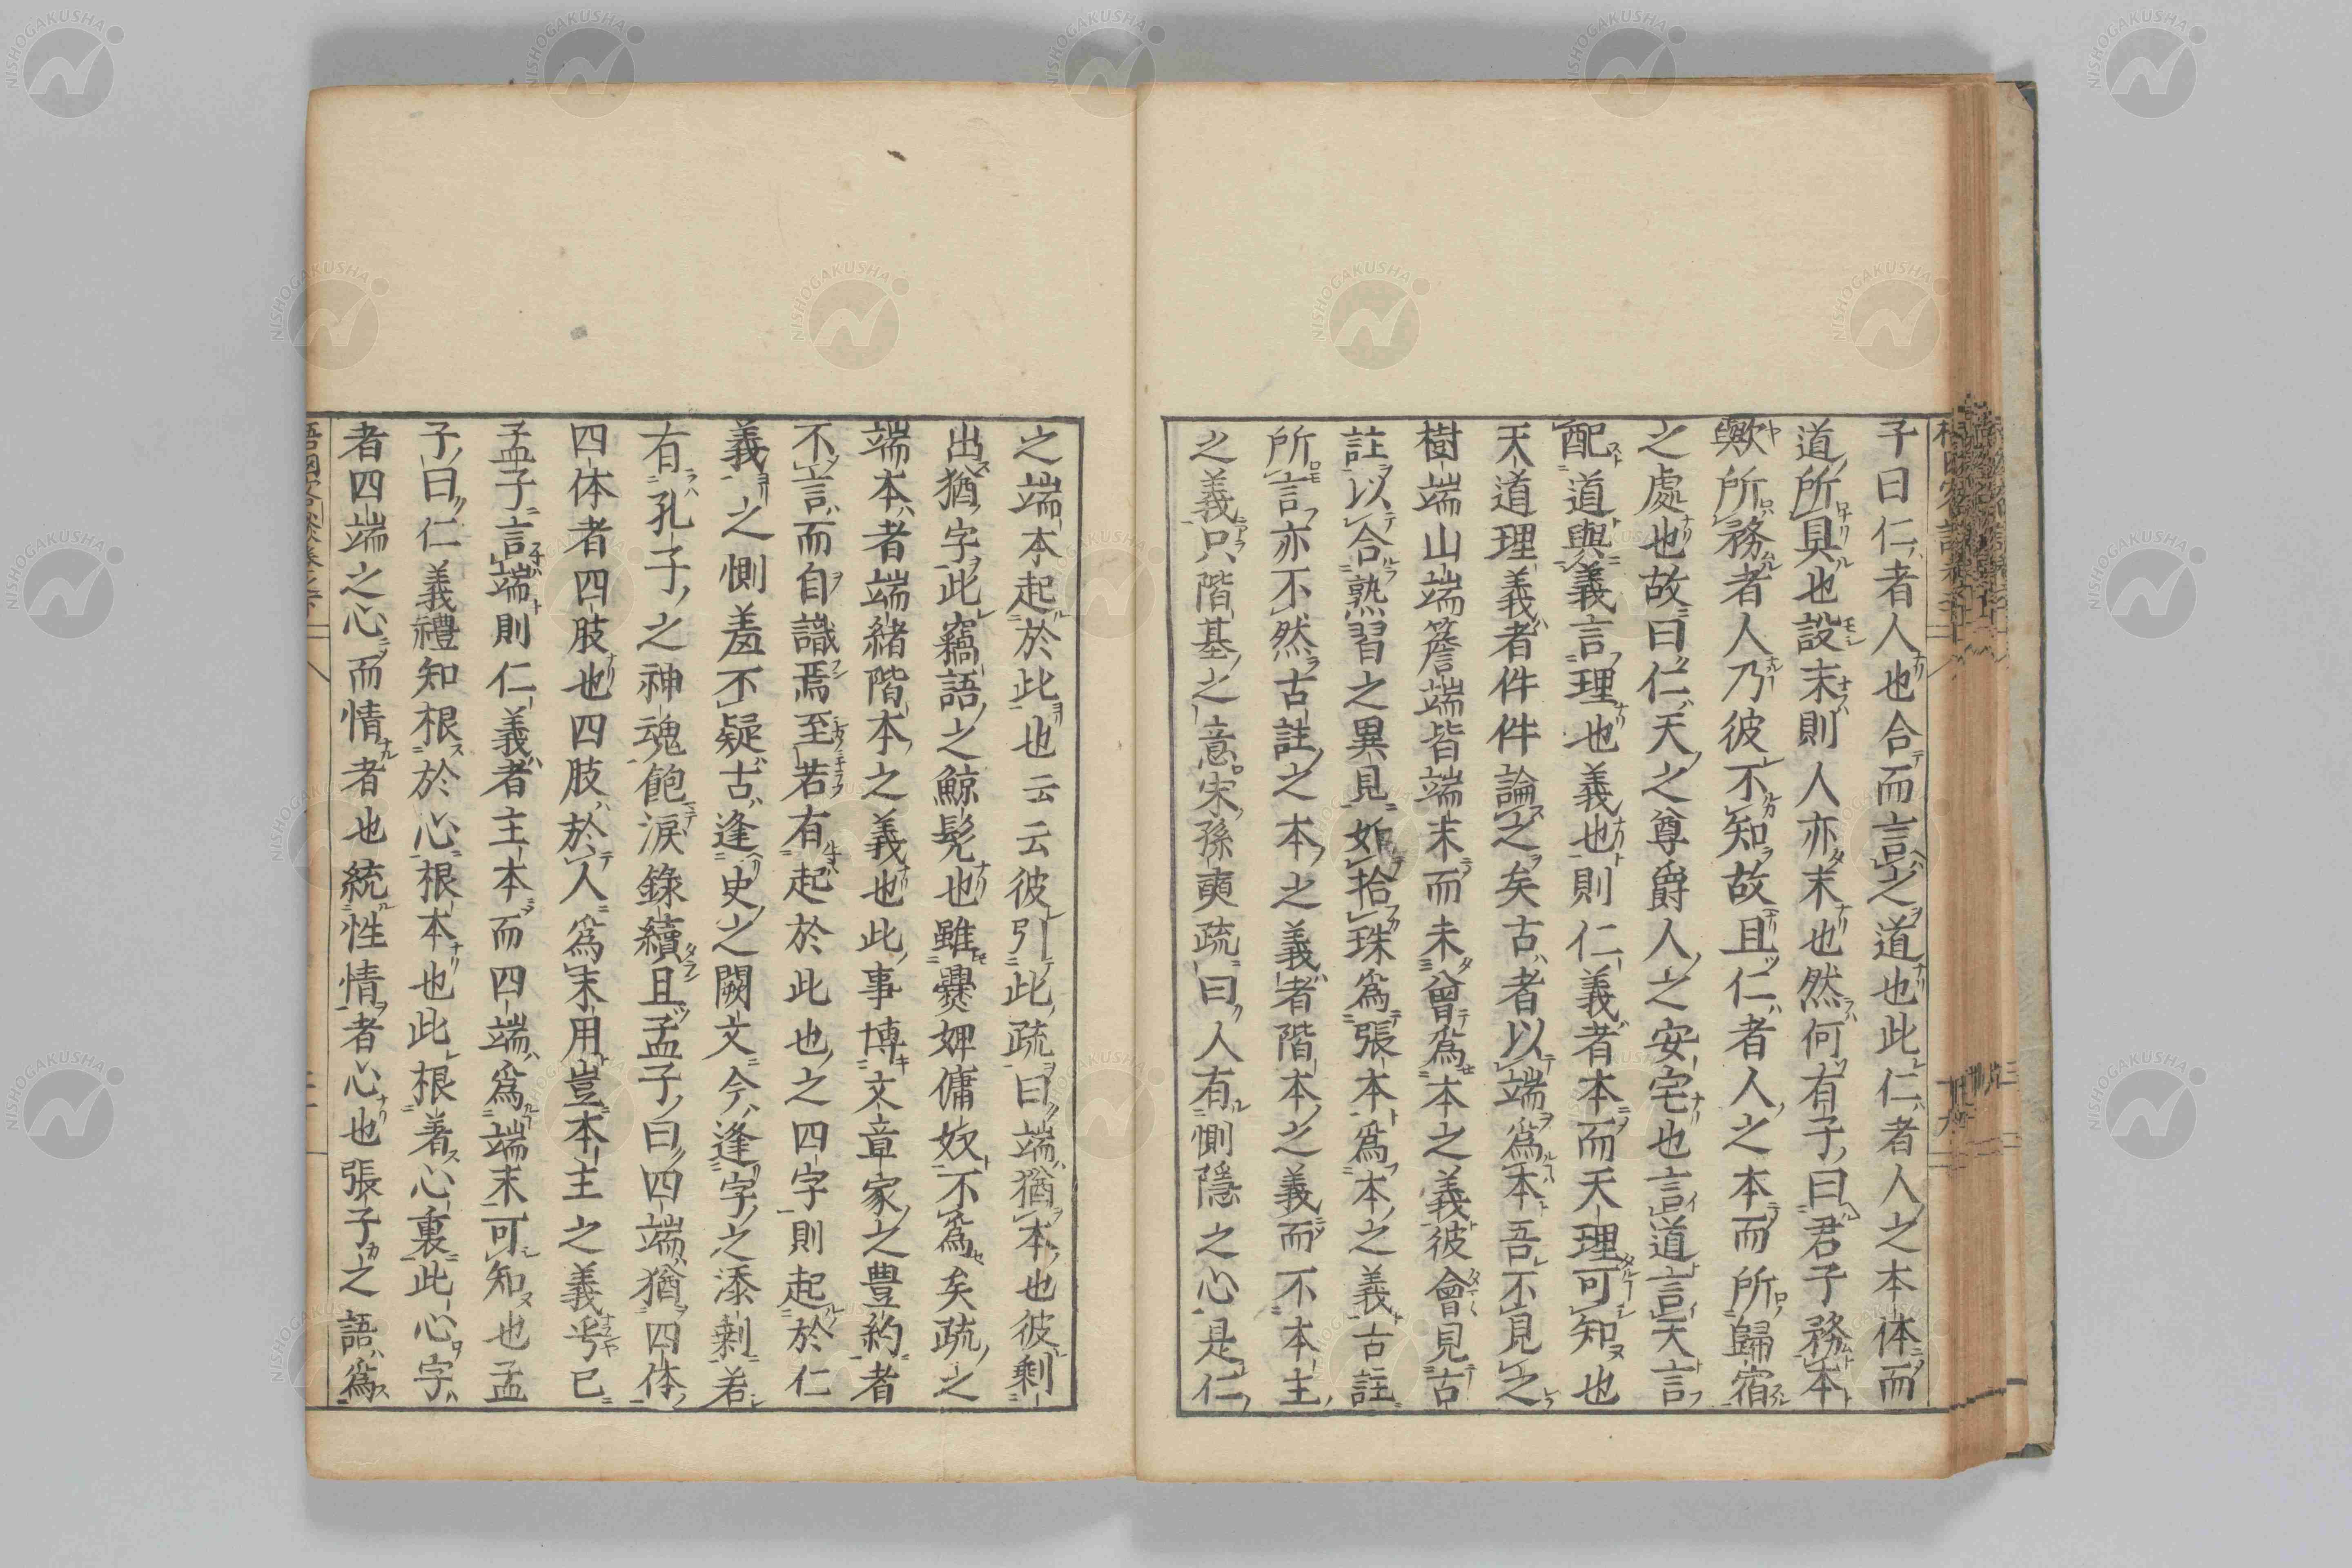 子曰仁者人也合而言之道也此仁者人之本体而
道所具也設末則人亦末也然何有子曰君子務本
歟所務者人乃彼不知故且仁者人之本而所歸宿
之處也故曰仁天之尊爵人之安宅也言道言天言
配道與義言理也義也則仁義者本而天理可知也
天道理義者件件論之矣古者以端為本吾不見之
樹端山端簷端皆端末而未曾為本之義彼會見古
註以合熟習之異見如拾珠為張本為本之義古註
所言亦不然古註之本之義者階本之義而不本主
之義只階基之意宋孫奭疏曰人有惻隱之心是仁
之端本起於此也云云彼引此疏曰端猶本也彼剩
出猶字此竊語之鯨髡也雖爨婢傭奴不為矣疏之
端本者端緒階本之義也此事博文章家之豊約者
不言而自識焉至若有起於此也之四字則起於仁
義之惻羞不疑古逢史之闕文今逢字之添剰若
有孔子之神魂飽淚錄續且孟子曰四端猶四体
四体者四肢也四肢於人為末用豈本主之義乎已
孟子言端則仁義者主本而四端為端末可知也孟
子曰仁義禮知根於心根本也此根著心裏此心字
者四端之心而情者也統性情者心也張子之語為